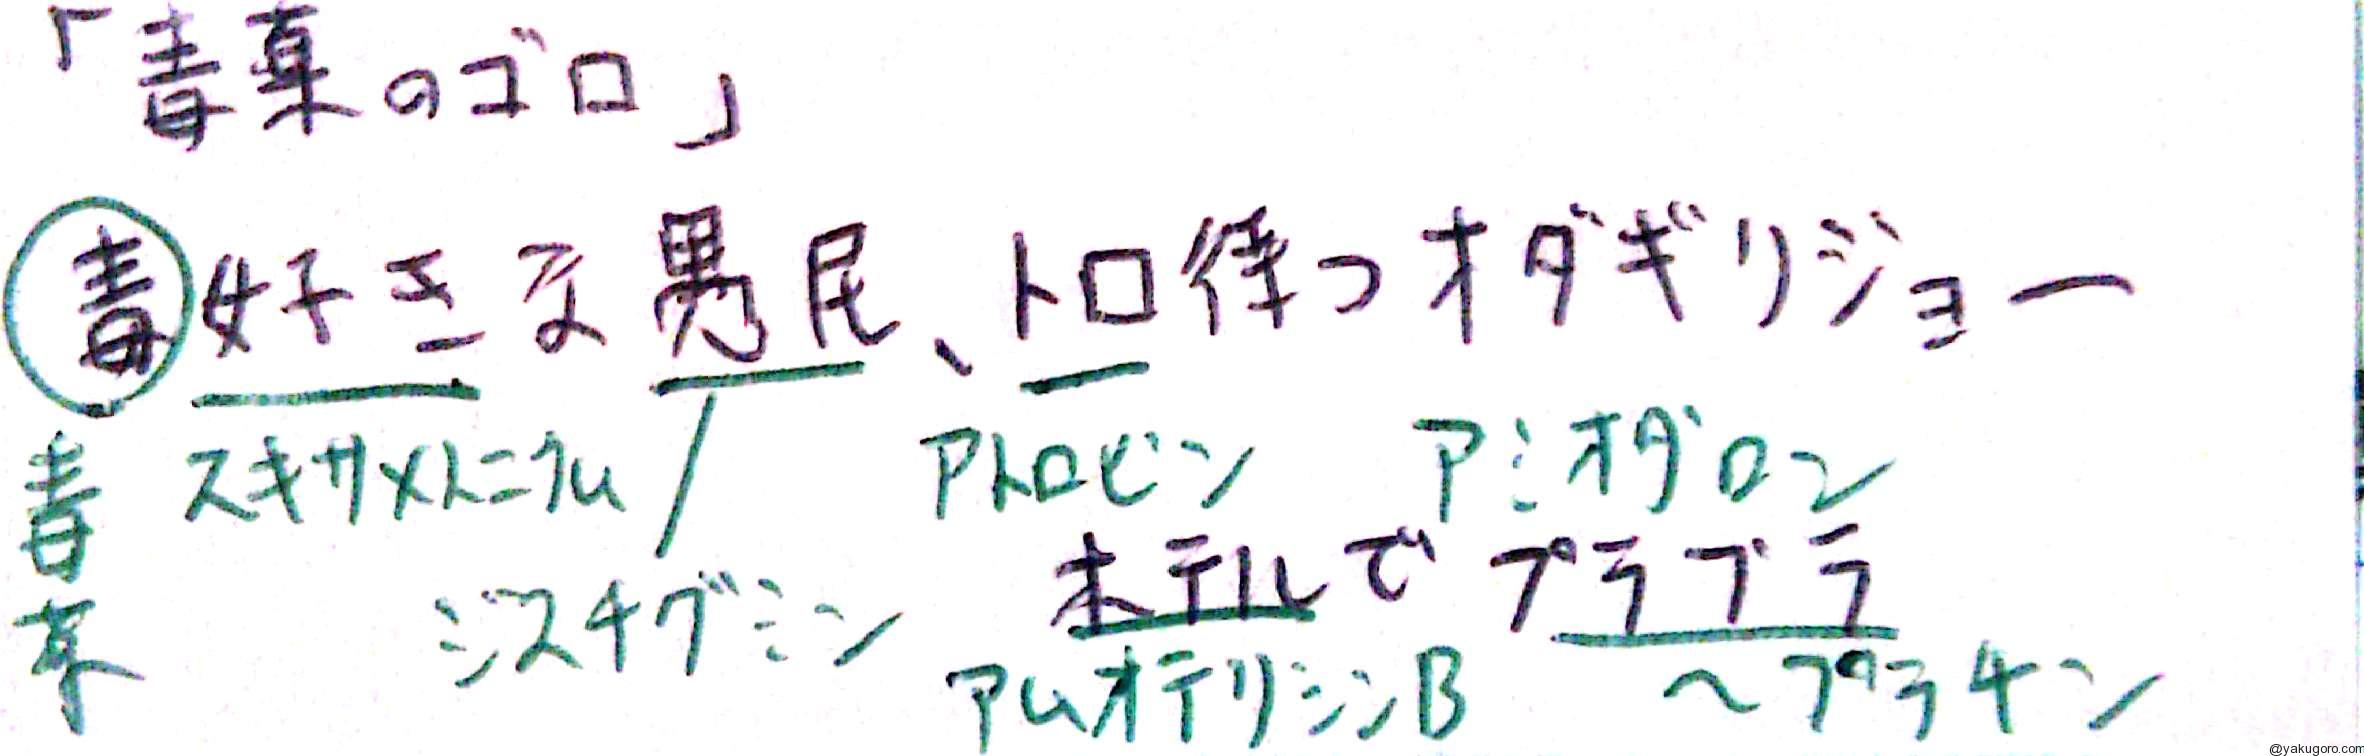 「毒薬のゴロ」
毒好きな愚民、トロ待つオダギリジョー
毒薬 スキサメトニウム アトロピン アミオダロン
ホテルでプラプラ
ジスチグミン アムホテリシンB 〜プラチン
@yakugoro.com